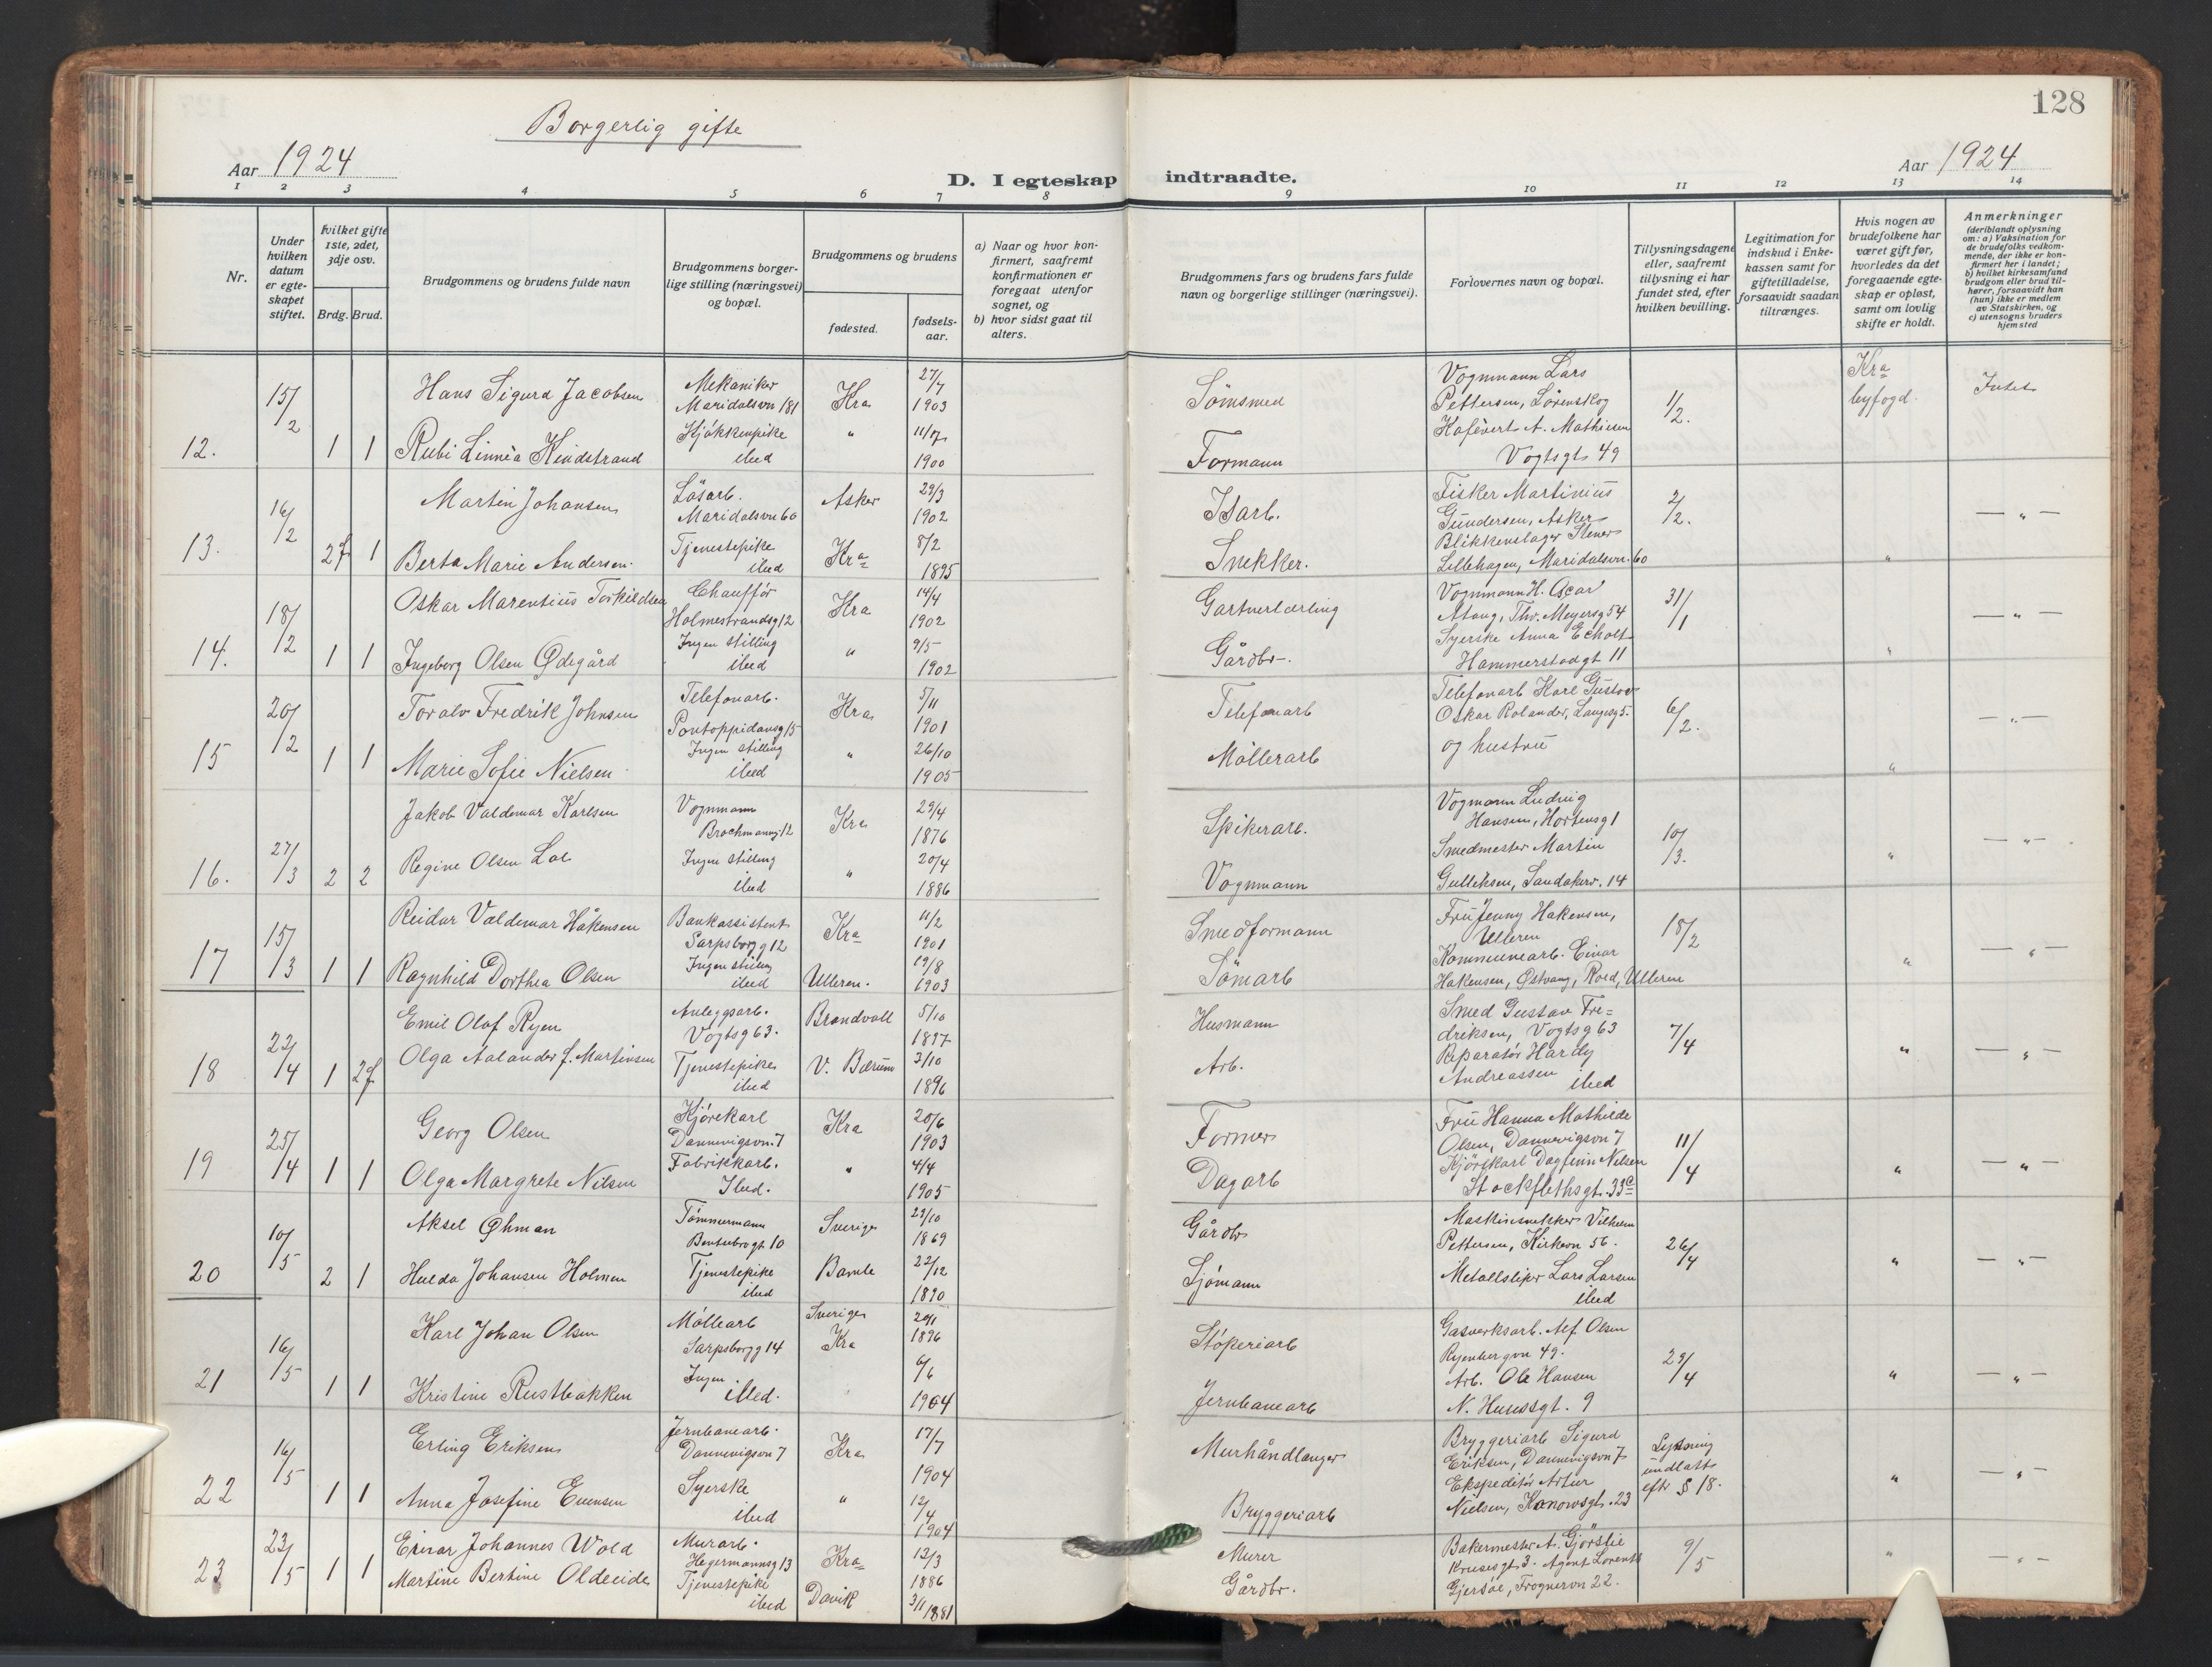 128
Borgerlig gifte
Aar 1924
D. I egteskap indtraadte.
Aar 1924
1 2 3 4 5 6 7 8 9 10 11 12 13 14
Nr.
Under hvilken datum er egteskapet stiftet.
hvilket gifte 1ste, 2det, 3dje osv.
Brdg. Brud.
Brudgommens og brudens fulde navn
Brudgommens borgerlige stilling (næringsvei) og bopæl.
Brudgommens og brudens
fødested.
fødselsaar.
a) Naar og hvor konfirmert, saafremt konfirmationen er foregaat utenfor sognet, og
b) hvor sidst gaat til alters.
Brudgommens fars og brudens fars fulde navn og borgerlige stillinger (næringsvei).
Forlovernes navn og bopæl.
Tillysningsdagene eller, saafremt tillysning ei har fundet sted, efter hvilken bevilling.
Legitimation for indskud i Enkekassen samt for giftetilladelse, forsaavidt saadan tiltrænges.
Hvis nogen av brudefolkene har været gift før, hvorledes da det foregaaende egteskap er opløst, samt om lovlig skifte er holdt.
Anmerkninger
(deriblandt oplysning om: a) Vaksination for de brudefolks vedkommende, der ikke er konfirmert her i landet;
b) hvilket kirkesamfund brudgom eller brud tilhører, forsaavidt han (hun) ikke er medlem av Statskirken, og
c) utensogns bruders hjemsted
12. 15/2 1 1
Hans Sigurd Jacobsen Mekaniker Maridalsvn 181 Kra 27/7 1903 Sömsmed
Rubi Linnèa Kindstrand Kjökkenpike ibid " 11/7 1900 Formann
Vognmann Lars Pettersen, Lörenskog
A. Mathiesen Vogtsgt 49
1/2. Kra byfogd. Intet
13. 16/2 2 f 1
Martin Johansen Lösarb. Maridalsvn 60 Asker 29/3 1902 Isarb.
Berta Marie Andersen. Tjenestepike ibid Kra 8/2 1895 Snekker.
Fisker Martinius Gundersen, Asker
Blikkenslager Stener Lillehagen, Maridalsvn. 60
2/2. " — " —
14. 18/2 1 1
Oskar Marentius Torkildsen Chauffór Holmestrandsg 12 Kra 14/4 1902 Gartnerlærling
Ingeborg Olsen Ødegård Ingen stilling ibid " 9/5 1902 Gårdbr.
Vognmann H. Oscar Thv. Meyersg 54
Syerske Anna Echolt Hammerstadgt 11
31/1 " — " —
15 20/2 1 1
Toralv Fredrik Johnsen Telefonarb. Pontoppidansg 15 Kra 5/11 1901 Telefonarb
Marie Sofie Nielsen Ingen stilling ibid " 26/10 1905 Möllerarb
Telefonarb Karl Gustav Oskar Rolander, Langesg 5.
og hustru
6/2. " — " —
16. 27/3 2 2
Jakob Valdemar Karlsen Vognmann Brochmannsg 12 Kra 29/4 1876 Spikerarb.
Regine Olsen Ingen stilling ibid " 20/4 1886 Vognmann
Vognmann Ludvig Hansen, Hortensg 1
Smedmester Martin Gulliksen, Sandakerv. 14
10/3. " — " —
17 15/3 1 1
Reidar Valdemar Håkensen Bankassistent Sarpsborg g 12 Kra 11/2 1901 Smedformann
Ragnhild Dorthea Olsen Ingen stilling ibid Ulleren. 19/8 1903 Sömarb
Fru Jenny Hakensen, Ulleren
Kommunearb. Einar Hakensen, Østvang, Roed, Ulleren
18/2 " — " —
18 22/4 1 2 f
Emil Olaf Ryen Anleggsarb. Vogtsg 63. Brandvoll 5/10 1897 Husmann
Olga Aalander f. Martinsen Tjenestepike ibid V. Bærum 3/10 1896 Arb.
Smed Gustav Fredriksen, Vogtsg 63
Reparatör Hardy Andreassen ibid
7/4 " — " —
19 25/4 1 1
Georg Olsen Kjörekarl Dannevigsvn. 7 Kra 20/6 1903 Former
Olga Margrete Nilsen Fabrikkarb. Ibid. " 4/4 1905 Dagarb
Fru Hanna Mathilde Olsen, Dannevigsvn 7
Kjörekarl Dagfinn Nilsen Stockflethsgt. 33c
11/4 " — " —
20 10/5 2 1
Aksel Øhman Tömmermann Bentsebrogt 10 Sverige 23/10 1869 Gårdbr
Hulda Johansen Holmen Tjenestepike ibid Bamle 22/12 1890 Sjömann
Maskinsnekker Vilhelm Pettersen, Kirkevn 56.
Metallsliper Lars Larsen ibid
26/4 " — " —
21 16/5 1 1
Karl Johan Olsen Möllearb Sarpsborgg 14 Sverige 29/1 1896 Stöperiarb
Kristine Rustbakken Ingen ibid. Kra 6/6 1904 Jernbanearb
Gasverksarb. Alf Olsen Ryenbergvn 49.
Arb. Ole Hansen N. Husesgt. 9
29/4 " — " —
22 16/5 1 1
Erling Eriksen Jernbanearb. Dannevigsvn 7 Kra 17/7 1904 Murhåndlanger
Anna Josefine Evensen Syerske ibid " 12/4 1904 Bryggeriarb
Bryggeriarb Sigurd Eriksen, Dannevigsvn 7
Ekspeditör Artur Nielsen, Kanowsgt. 23
Lysning undlatt eftr § 18. " — " —
23 23/5 1 1
Einar Johannes Wold Murarb. Hegermannsg 13 Kra 13/3 1886 Murer
Martine Bertine Oldeeide Tjenestepike ibid Davik 3/11 1881 Gårdbr.
Bakermester A. Gjörslie Krusesgt 3. Agent Lorents Gjersöe, Frognervn 22.
9/5 " — " —